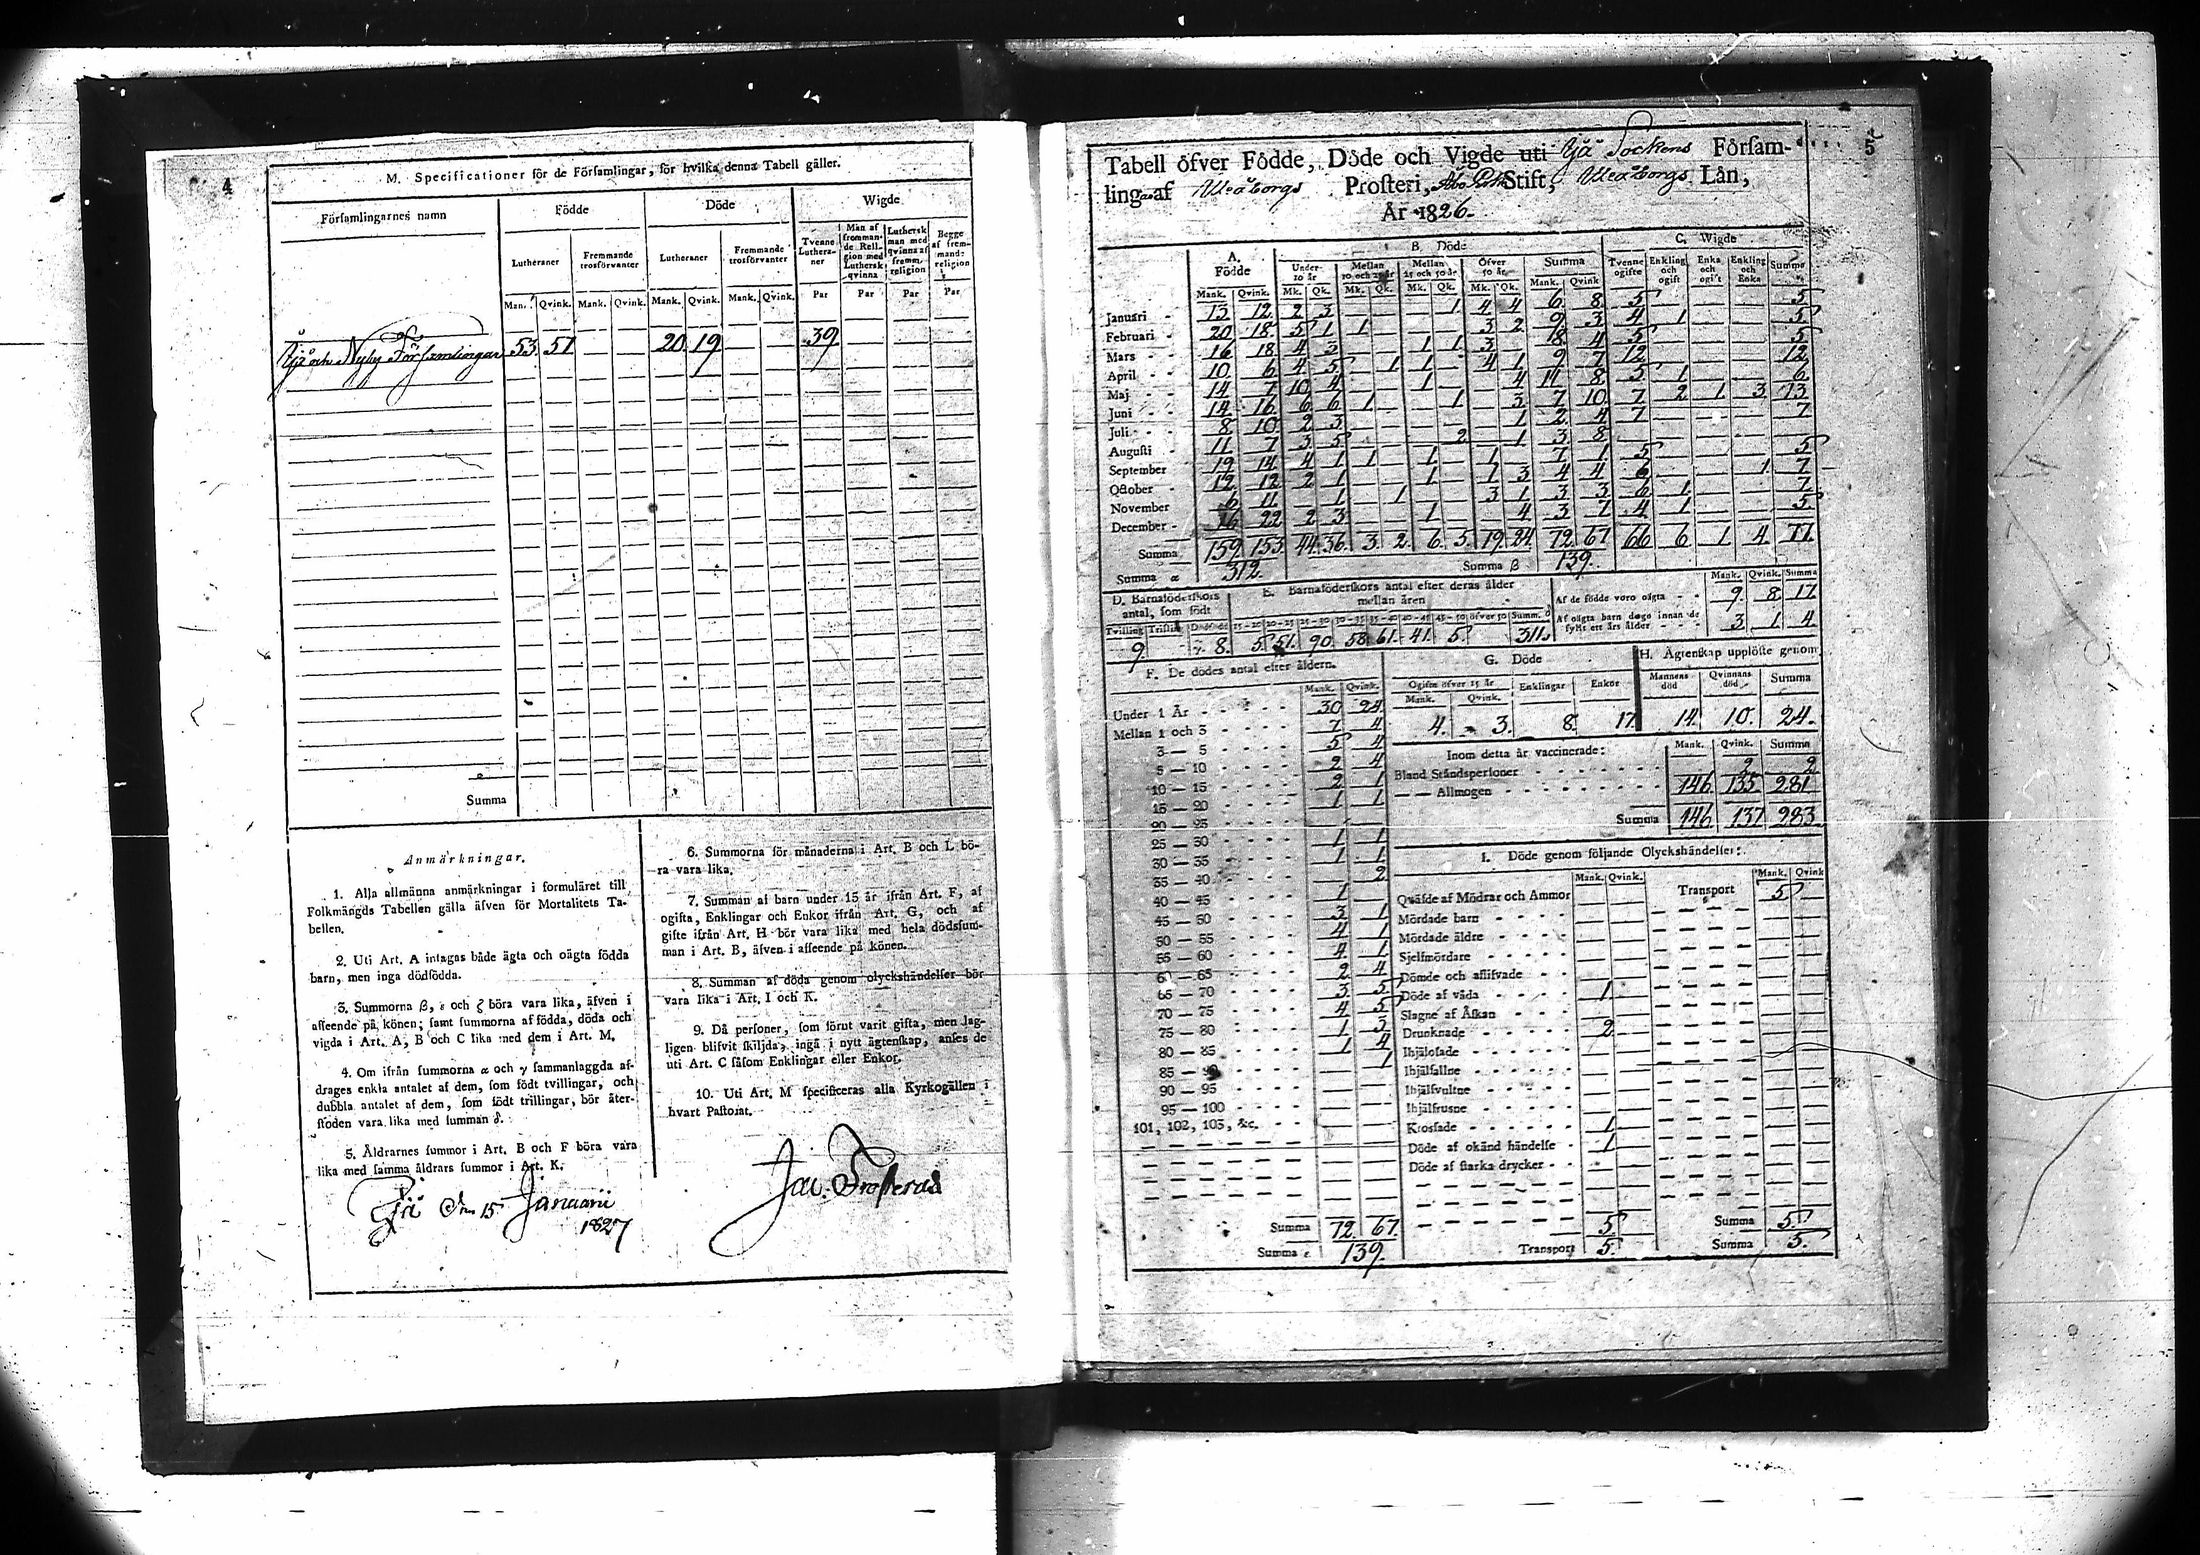 4
M. Specificationer för de Församlingar, för hvilka denna Tabell gäller.
Församlingarnes namn
Födde
Döde
Wigde
Lutheraner
Fremmande trosförvanter
Lutheraner
Fremmande trosförvanter
Tvenne Lutheraner
Man af frommande Religion med Luthersk qvinna
Luthersk man med qvinna af fremm. religion
Begge af fremmande religion
Man. Qvink. Mank. Qvink. Mank. Qvink. Mank. Qvink. Par Par Par Par
Ijå och Nyby Församlingar 53 51 20 19 39
Summa
Anmärkningar.
1. Alla allmänna anmärkningar i formuläret till
Folkmängds Tabellen gälla äfven för Mortalitets Ta-
bellen.
2. Uti Art. A intagas både ägta och oägta födda
barn, men inga dödfödda.
3. Summorna ß, ε och ζ böra vara lika, äfven i
afseende på könen; samt summorna af födda, döda och
vigda i Art. A, B och C lika med dem i Art. M.
4. Om ifrån summorna α och γ sammanlaggda af-
drages enkla antalet af dem, som födt tvillingar, och
dubbla antalet af dem, som födt trillingar, bör åter-
stoden vara lika med summan δ.
5. Åldrarnes summor i Art. B och F böra vara
lika med samma åldrars summor i Art. K.
Ijå den 15 Januarii
1827
6. Summorna för månaderna i Art. B och L bö-
ra vara lika.
7. Summan af barn under 15 år ifrån Art. F, af
ogifta, Enklingar och Enkor ifrån Art. G, och af
gifte ifrån Art. H bör vara lika med hela dödssum-
man i Art. B, äfven i afseende på könen.
8. Summan af döda genom olyckshändelser bör
vara lika i Art. I och K.
9. Då personer, som förut varit gifta, men lag-
ligen blifvit skiljda, ingå i nytt ägtenskap, anses de
uti Art. C såsom Enklingar eller Enkor.
10. Uti Art. M specificeras alla Kyrkogällen i
hvart Pastorat.
Jac. Frosterus
5
Tabell öfver Födde, Döde och Vigde uti Ijå Sockens Församling
af Uleåborgs Prosteri, Åbo Stift, Uleåborgs Län,
År 1826.
A. Födde
B. Döde
C. Wigde
Under 10 år
Mellan 10 och 25 år
Mellan 25 och 50 år
Öfver 50 år
Summa
Tvenne ogifte
Enkling och ogift
Enka och ogift
Enkling och Enka
Summa
Mank. Qvink. Mk. Qk. Mk. Qk. Mk. Qk. Mk. Qk. Mank. Qvink
Januari 13 12 2 3 1 4 4 6 8 5 5
Februari 20 18 5 1 1 3 2 9 3 4 1 5
Mars 16 18 4 3 1 1 3 4 5 5
April 10 6 4 5 1 1 4 1 9 7 12 12
Maj 14 7 10 4 1 4 8 5 1 6
Juni 14 16 6 6 1 1 3 7 10 7 2 1 3 13
Juli 8 10 2 3 1 2 4 7 7
Augusti 11 7 3 5 2 1 3 8
September 19 14 4 1 1 1 1 7 1 5 5
October 12 12 2 1 1 1 3 4 4 6 1 7
November 6 11 1 1 3 1 3 3 6 1 7
December 16 22 2 3 1 4 3 4 1 5
Summa 159 153 44 36 3 2 6 5 19 24 72 67 66 6 1 4 77
Summa α 312. Summa ß 139.
D. Barnaföderskors antal, som födt
E. Barnaföderskors antal efter deras ålder mellan åren
Tvilling Trilling Dödfödde 15-20 20-25 25-30 30-35 35-40 40-45 45-50 öfver 50 Summ. δ
9. γ. 8. 5 51. 90. 58 61. 41. 5 311.
Mank. Qvink. Summa
Af de födde voro oägta 9. 8. 17.
Af oägta barn dogo innan de fyllt ett års ålder 3 1 4
F. De dödes antal efter åldern.
Mank. Qvink.
Under 1 År 30 24
Mellan 1 och 3 7 4
3 — 5 5 4
5 — 10 2 4
10 — 15 2 1
15 — 20 1 1
20 — 25
25 — 30 1 1
30 — 35 1 1
35 — 40 2
40 — 45 1
45 — 50 3 1
50 — 55 4 1
55 — 60 4 1
60 — 65 2 4
65 — 70 3 5
70 — 75 4 5
75 — 80 1 3
80 — 85 1 4
85 — 90 1
90 — 95
95 — 100
101, 102, 103, &c.
Summa 72. 67.
Summa ε 139.
G. Döde
Ogifta öfver 15 år
Enklingar
Enkor
Mank. Qvink.
4. 3. 8. 17.
H. Ägtenskap upplöste genom
Mannens död
Qvinnans död
Summa
14. 10. 24.
Inom detta år vaccinerade: Mank. Qvink. Summa
Bland Ståndspersoner 2 2
— — Allmogen 146 135 281
Summa 146 137 283
I. Döde genom följande Olyckshändelser:
Mank. Qvink. Mank. Qvink
Qväfde af Mödrar och Ammor Transport 5
Mördade barn
Mördade äldre
Sjelfmördare
Dömde och aflifvade
Döde af våda 1
Slagne af Åskan
Drunknade 2
Ihjälosade
Ihjälfallne
Ihjälsvultne
Ihjälfrusne
Krossade 1
Döde af okänd händelse 1
Döde af starka drycker
5 Summa 5
Transport 5. Summa 5.